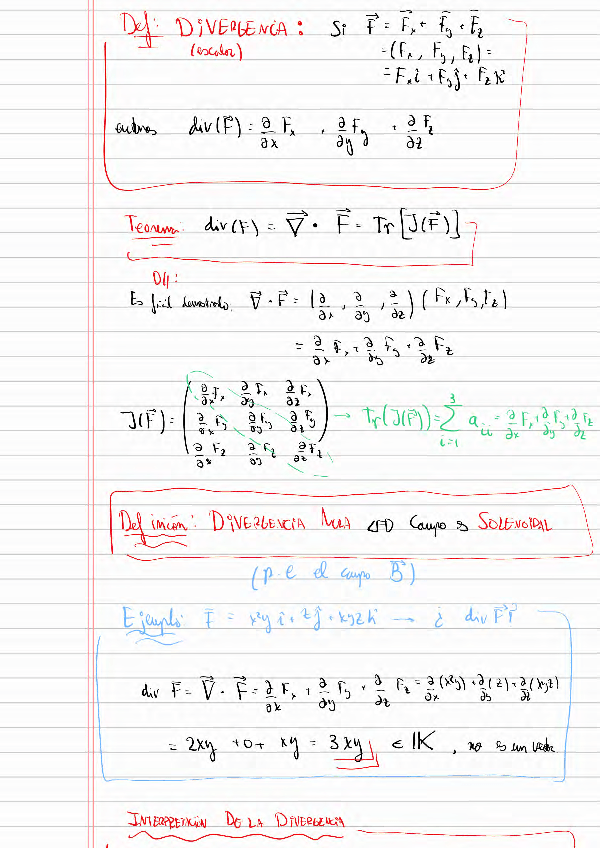 Def: DIVERGENCIA: Si F⃗ = F⃗x + F⃗y + F⃗z
(escalar) = (Fx, Fy, Fz) =
= Fx î + Fy ĵ + Fz k̂
entonces div(F⃗) = ∂/∂x Fx + ∂/∂y Fy + ∂/∂z Fz
Teorema: div(F) = ∇⃗ · F⃗ = Tr[J(F⃗)]
D//:
Es fácil demostrarlo. ∇⃗ · F⃗ = (∂/∂x, ∂/∂y, ∂/∂z)(Fx, Fy, Fz)
= ∂/∂x Fx + ∂/∂y Fy + ∂/∂z Fz
∂/∂x Fx ∂/∂y Fx ∂/∂z Fx
J(F⃗) = ( ∂/∂x Fy ∂/∂y Fy ∂/∂z Fy ) → Tr(J(F⃗)) = Σ_{i=1}^{3} a_{ii} = ∂/∂x Fx + ∂/∂y Fy + ∂/∂z Fz
∂/∂x Fz ∂/∂y Fz ∂/∂z Fz
Definición: DIVERGENCIA NULA ⇔ Campo es SOLENOIDAL
(p.e el campo B⃗)
Ejemplo: F⃗ = x²y î + z ĵ + xyz k̂ → ¿ div F⃗ ?
div F⃗ = ∇⃗ · F⃗ = ∂/∂x Fx + ∂/∂y Fy + ∂/∂z Fz = ∂/∂x (x²y) + ∂/∂y (z) + ∂/∂z (xyz)
= 2xy + 0 + xy = 3xy ∈ 𝕂, no es un vector
INTERPRETACIÓN DE LA DIVERGENCIA